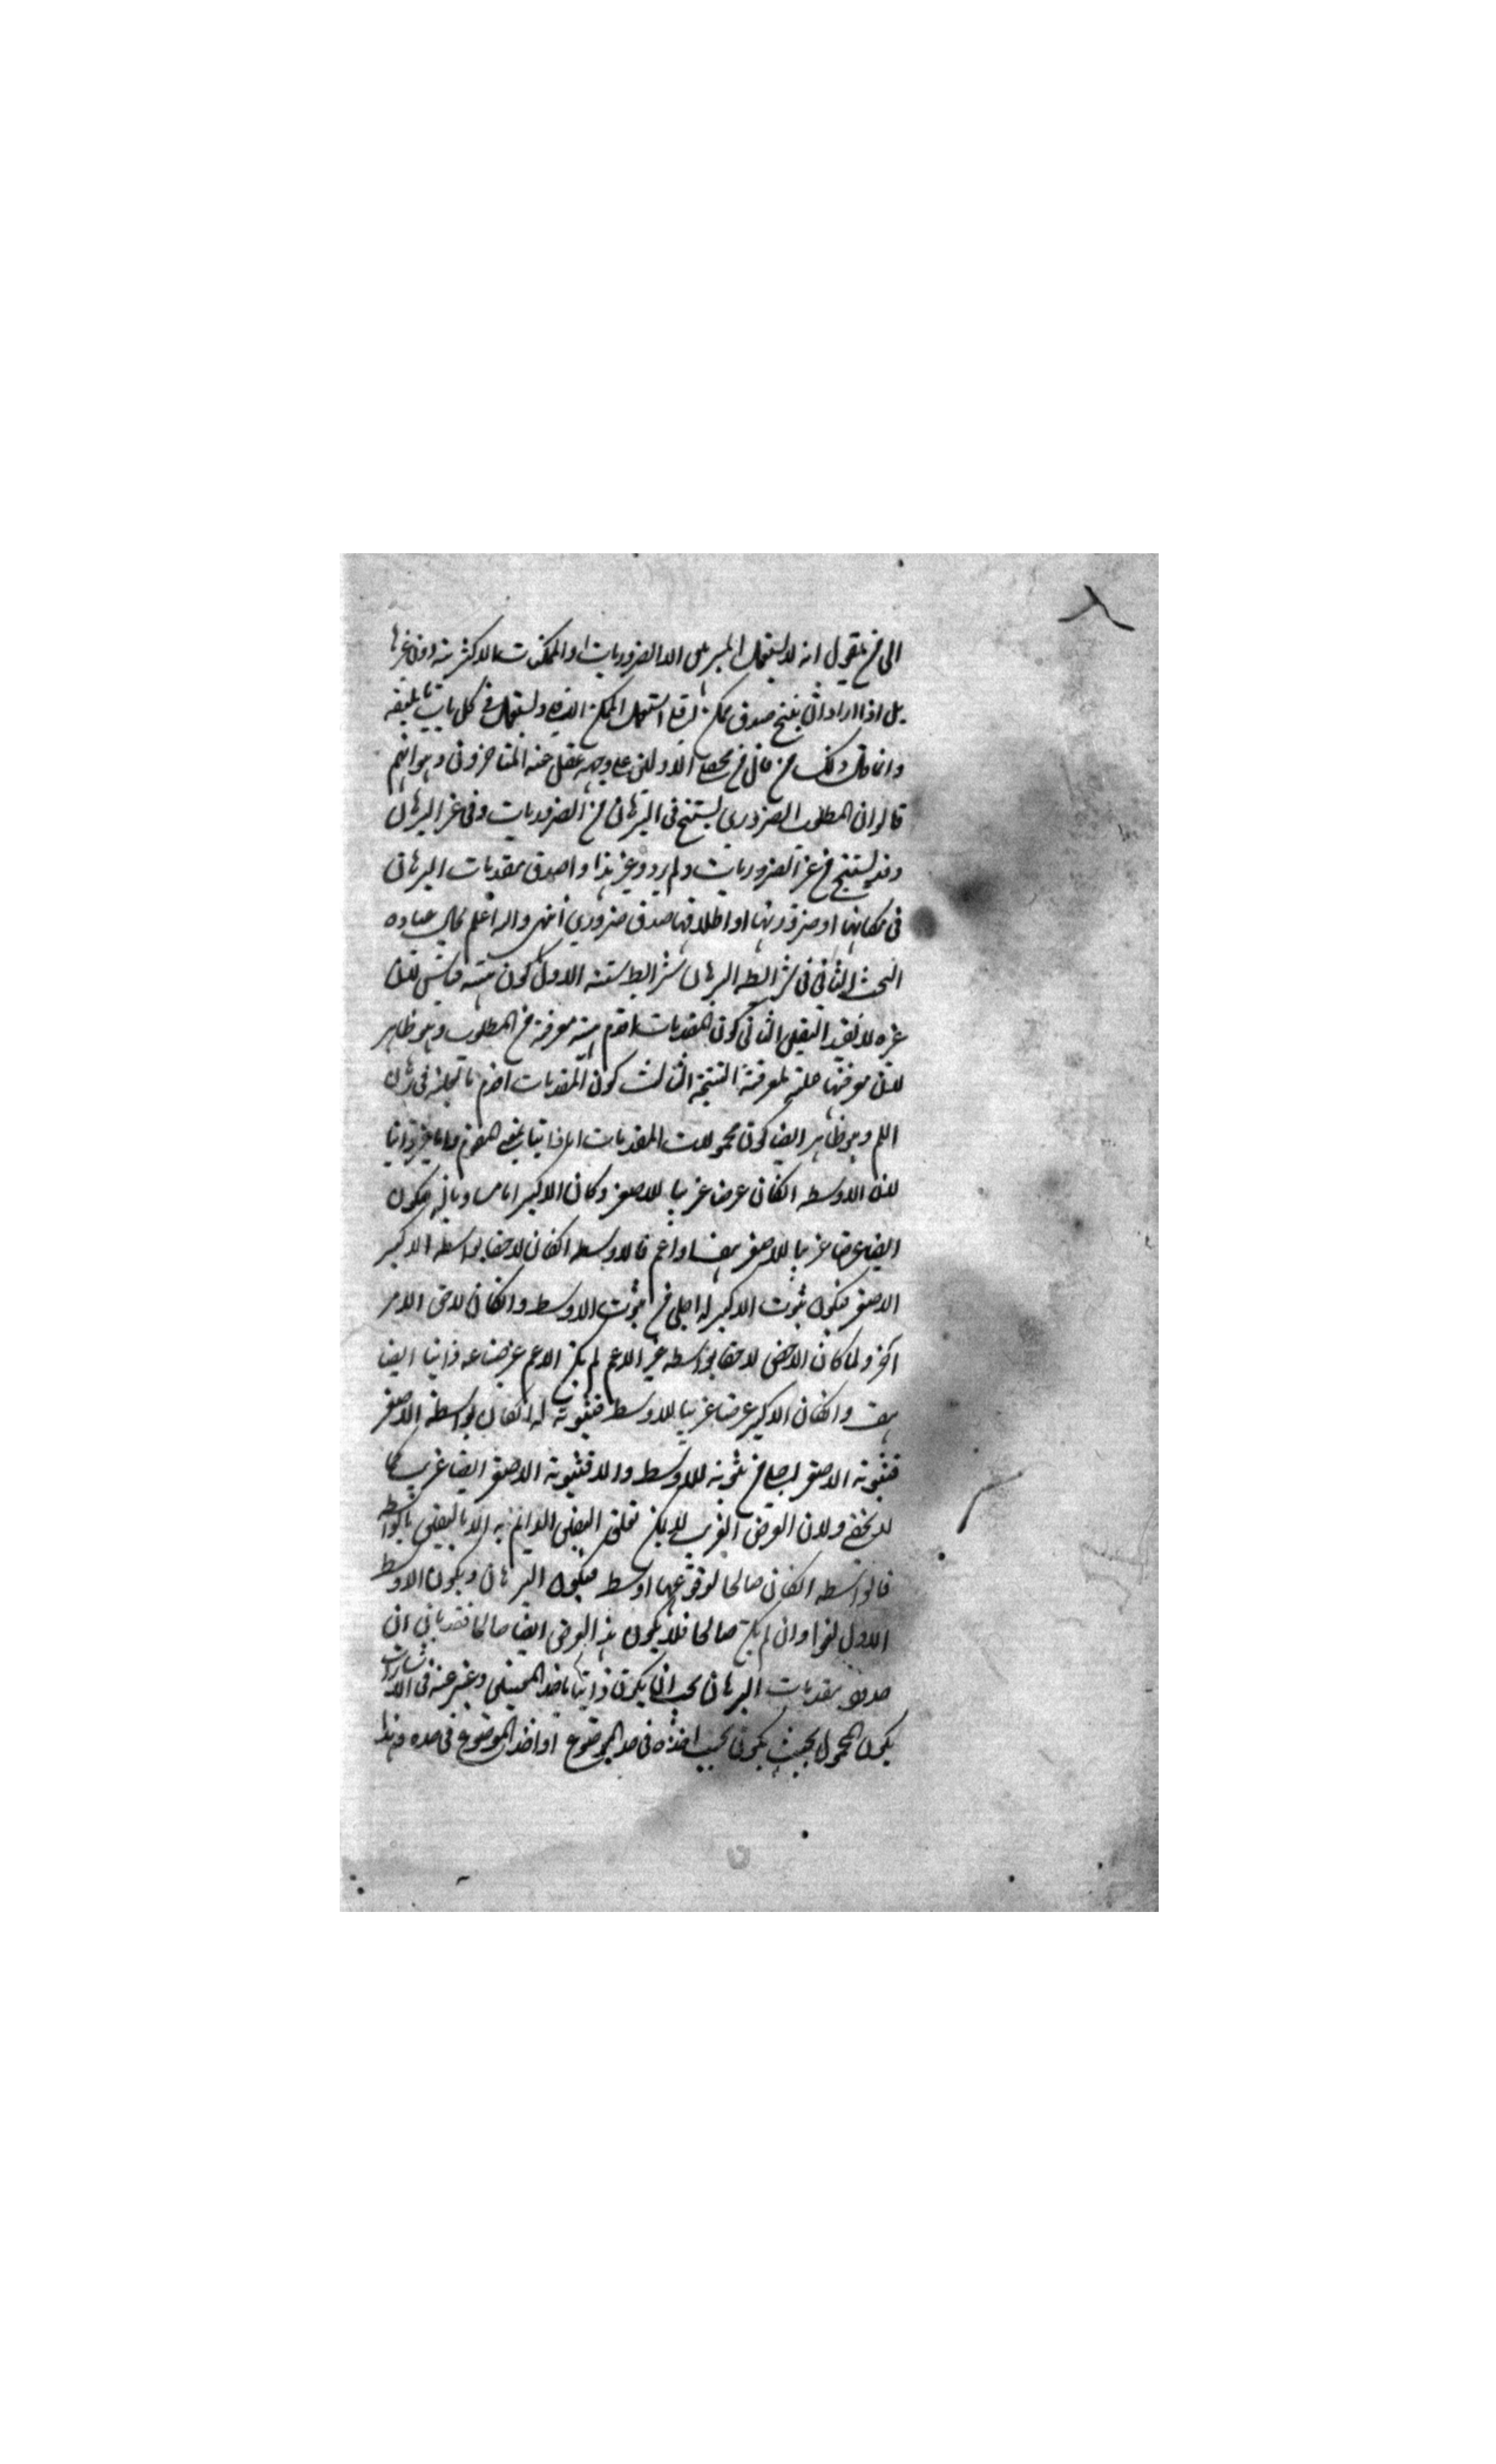 الى من يقول انه لا يستعمل المبرهن الا الضروريات او الممكنات الاكثرية دون غيرها
بل اذا اراد ان ينتج صدق ممكن اقلي استعمل الممكن الاقلي ويستعمل في كل باب ما يليق به
وانما قال ذلك من قال من محصلي الاولين على وجه غفل عنه المتاخرون وهو انهم
قالوا ان المطلوب الضروري يستنتج في البرهان من الضروريات وفي غير البرهان
وقد يستنتج من غير الضروريات ولم يرد غير هذا او صدق مقدمات البرهان
في امكانها او ضرورتها او اطلاقها صدق ضروري انتهى والله اعلم بحال عباده
البحث الثاني في شرائط البرهان شرائط ستة الاول كون قياسه لان
غيره لا يفيد اليقين الثاني كون المقدمات اقدم معرفة من المطلوب وهو ظاهر
لان معرفتها علة لمعرفة النتيجة الثالث كون المقدمات اقدم بالعلية في برهان
اللم وهو ظاهر ايضا كون محمولات المقدمات ذاتيا
لان الاوسط ان كان عرضا غريبا للاصغر وكان الاكبر اما مساويا له فيكون
ايضا عرضا غريبا للاصغر او اعم فالاوسط ان كان لاحقا بواسطة الاكبر
الاصغر فيكون ثبوت الاكبر له اجلى من ثبوت الاوسط وان كان لاحق الامر
آخر ولما كان الاخص لاحقا بواسطة غير الاعم لم يكن الاعم عرضا ذاتيا ايضا
هف وان كان الاكبر عرضا غريبا للاوسط فثبوته له ان كان بواسطة الاصغر
فثبوته الاصغر اجلى من ثبوته للاوسط والا فثبوته الاصغر ايضا غريب كما
لا يخفى ولان العرض الغريب لا يمكن تعلق اليقين الدائم به الا باليقين بالواسطة
فالواسطة ان كان صالحا لوقوعها اوسط فيكون البرهان ويكون الاوسط
الاول لغوا وان لم يكن صالحا فلا يكون هذا العرض ايضا صالحا فقد بان ان
صدق مقدمات البرهان يجب ان يكون ذاتيا باحد المعنيين وعبر عنه في الاشارات
يكون المحمول بحيث يكون يجب اخذه في حد الموضوع او اخذ الموضوع في حده وهذا